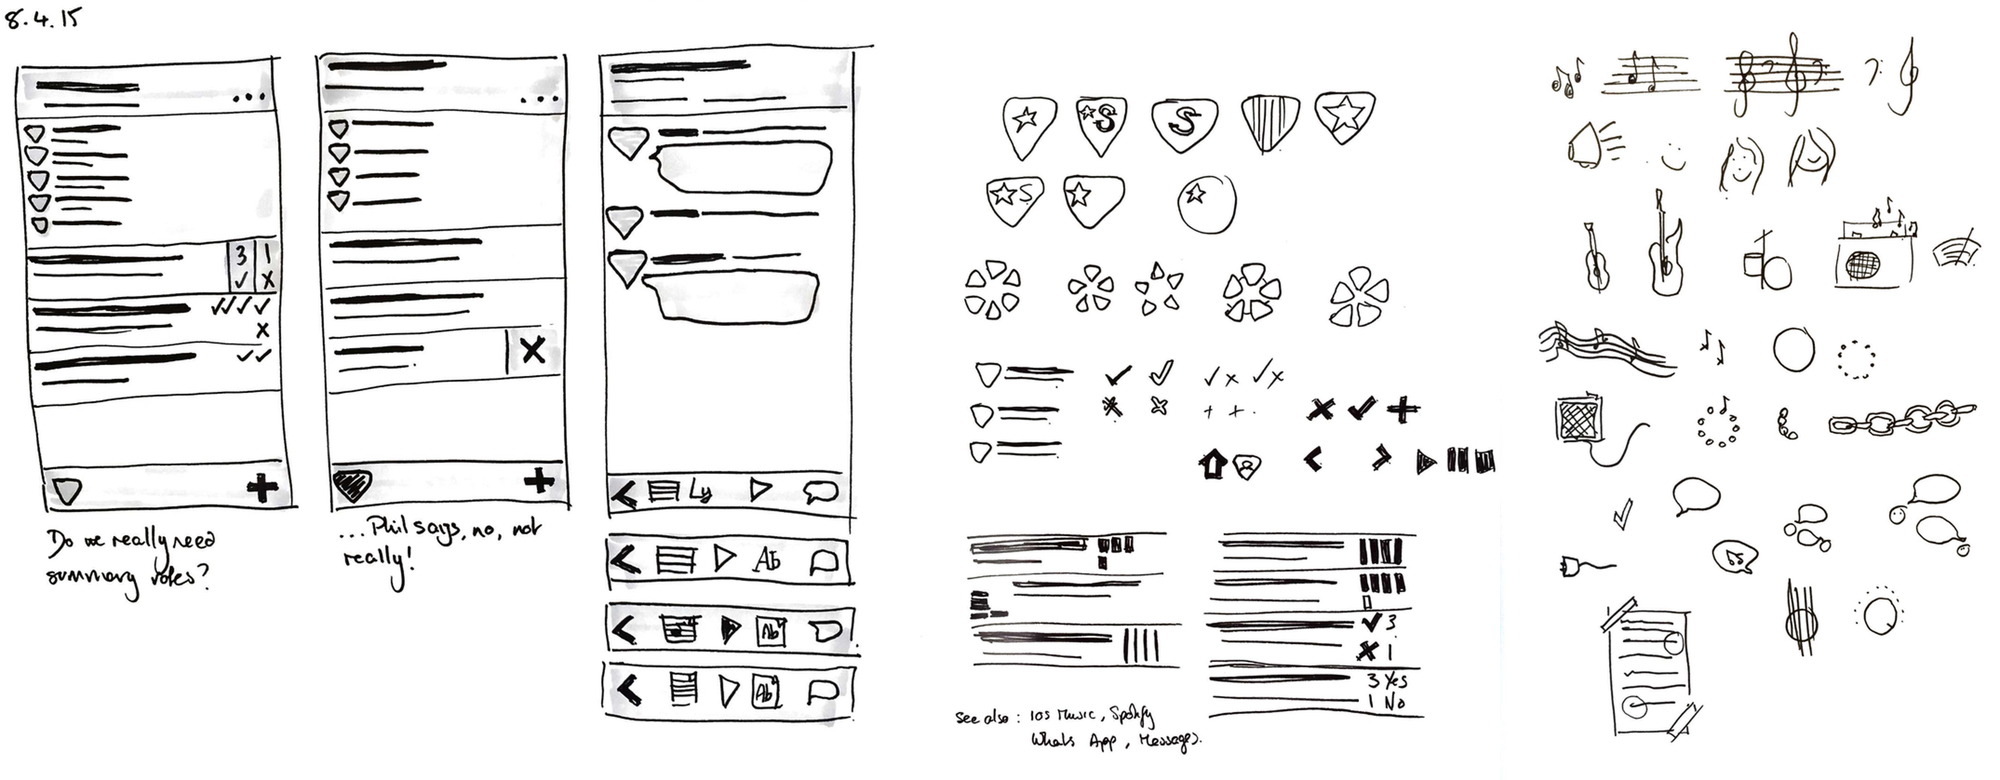 8.4.15
3 1
Do we really need
summary votes?
...Phil says, no, not
really!
Ly
Ab
Ab
Ab
S
S
S
3
1
3 Yes
1 No
See also : ios Music, Spotify
Whats App, Messages.